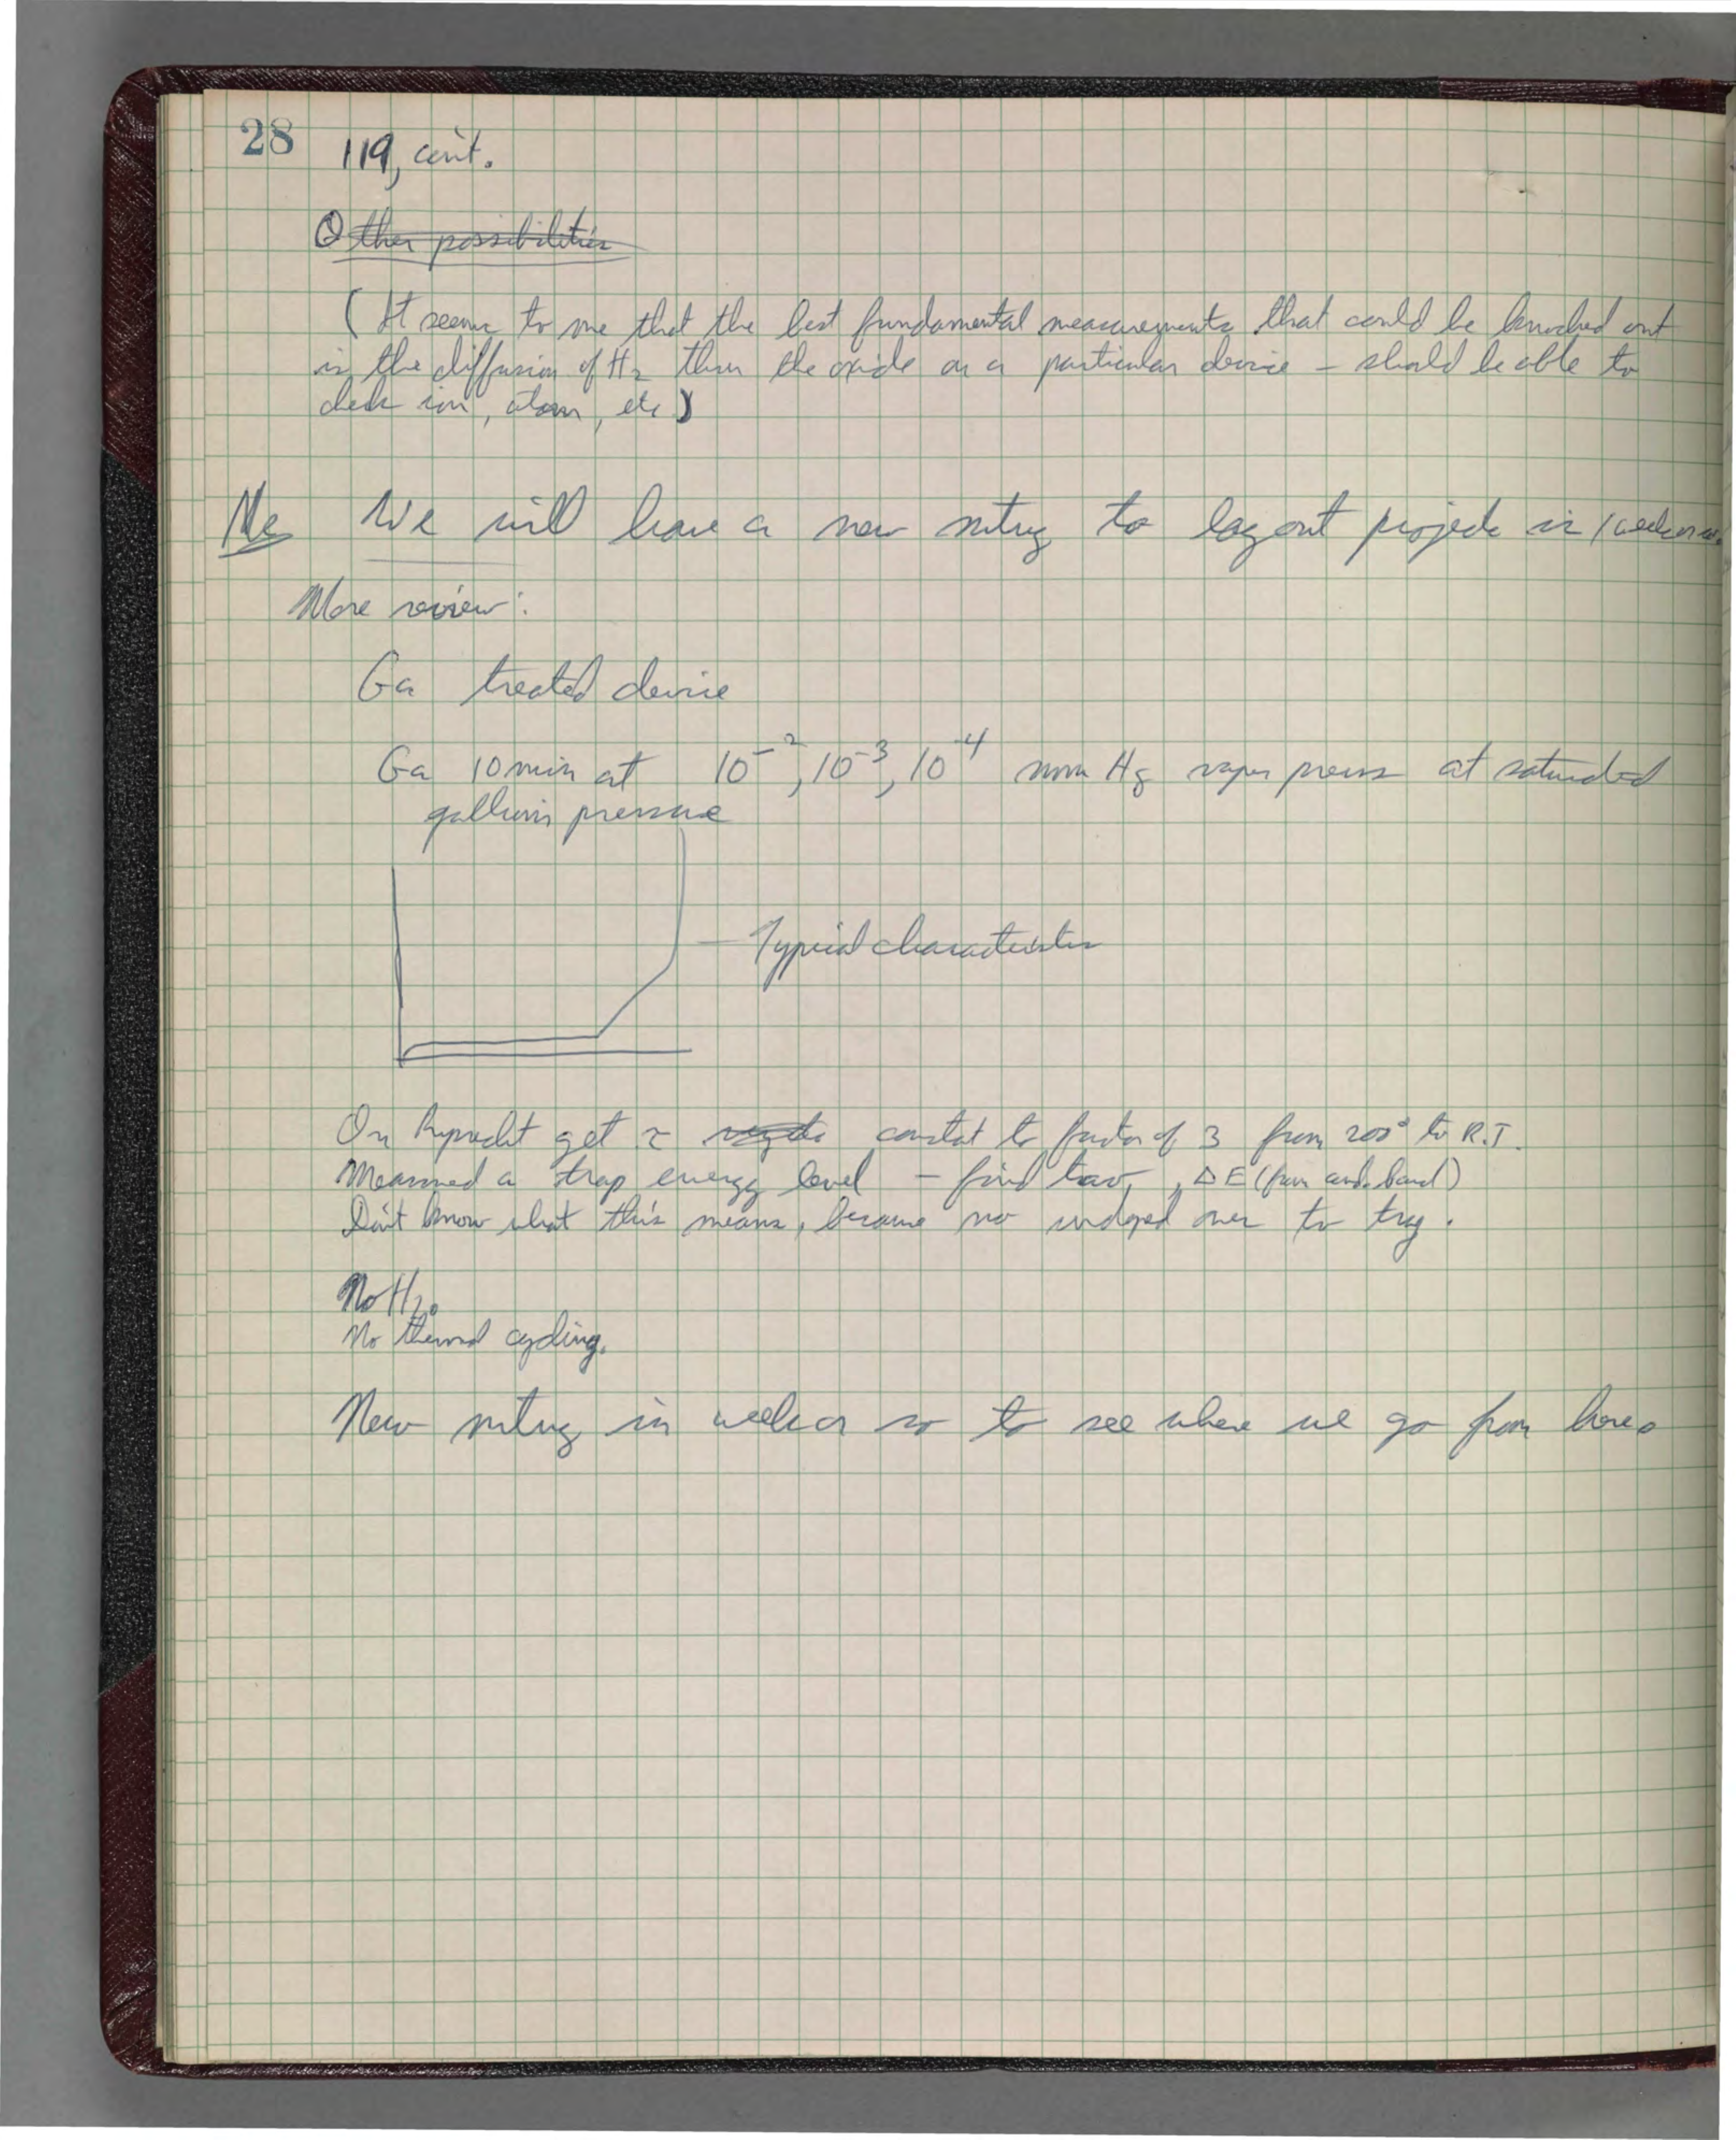 28
119, con't.
Other possibilities
(It seems to me that the best fundamental measurements that could be knocked out
is the diffusion of H2 thru the oxide on a particular device - should be able to
check ion, atom, etc)
We will have a new mtng to lay out projects in 1 week or so.
More review:
Ga treated device
Ga 10 min at 10^-2, 10^-3, 10^-4 mm Hg vapor press at saturated
gallium pressure
Typical characteristic
On get τ constant to factor of 3 from 200° to R.T.
Measured a trap energy level - find, ΔE (from cond. band)
Don't know what this means, because no undoped ones to try.
No H2O
No thermal cycling.
New mtng in week or so to see where we go from here.